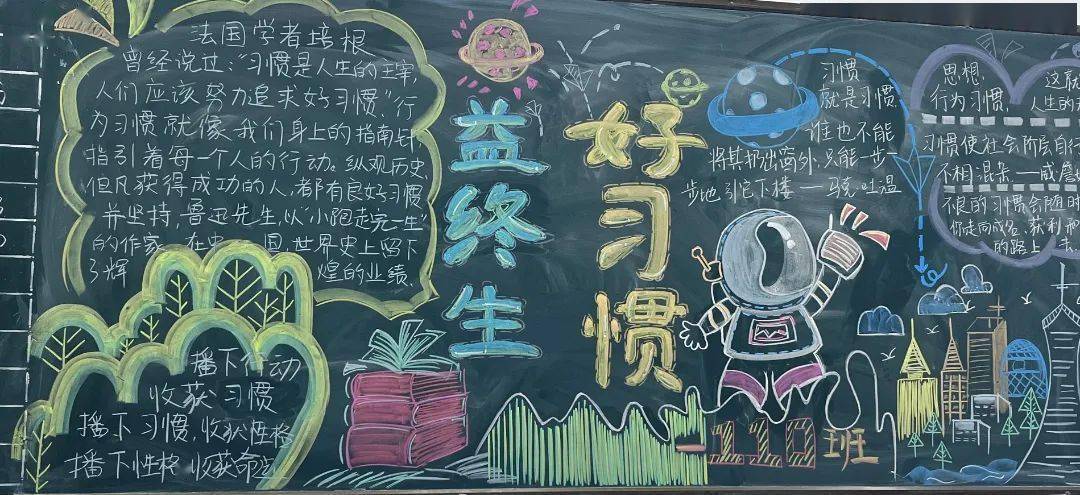 法国学者培根
曾经说过:"习惯是人生的主宰,
人们应该努力追求好习惯"行
为习惯就像我们身上的指南针
指引着每一个人的行动。纵观历史,
但凡获得成功的人,都有良好习惯
并坚持,鲁迅先生,以"小跑走完一生"
的作家 在 国,世界史上留下
了辉 煌的业绩.
播下行动
收获习惯
播下习惯,收获性格
播下性格 收获命
益终生
好习惯
110班
习惯
就是习惯,
谁也不能
将其扔出窗外,只能一步一
步地引它下楼 — 马克·吐温
思想, 这就
行为习惯, 人生的
习惯使社会阶层自行
不相混杂.—威廉
不良的习惯会随时
你走向成名、获利和
的路上 去.